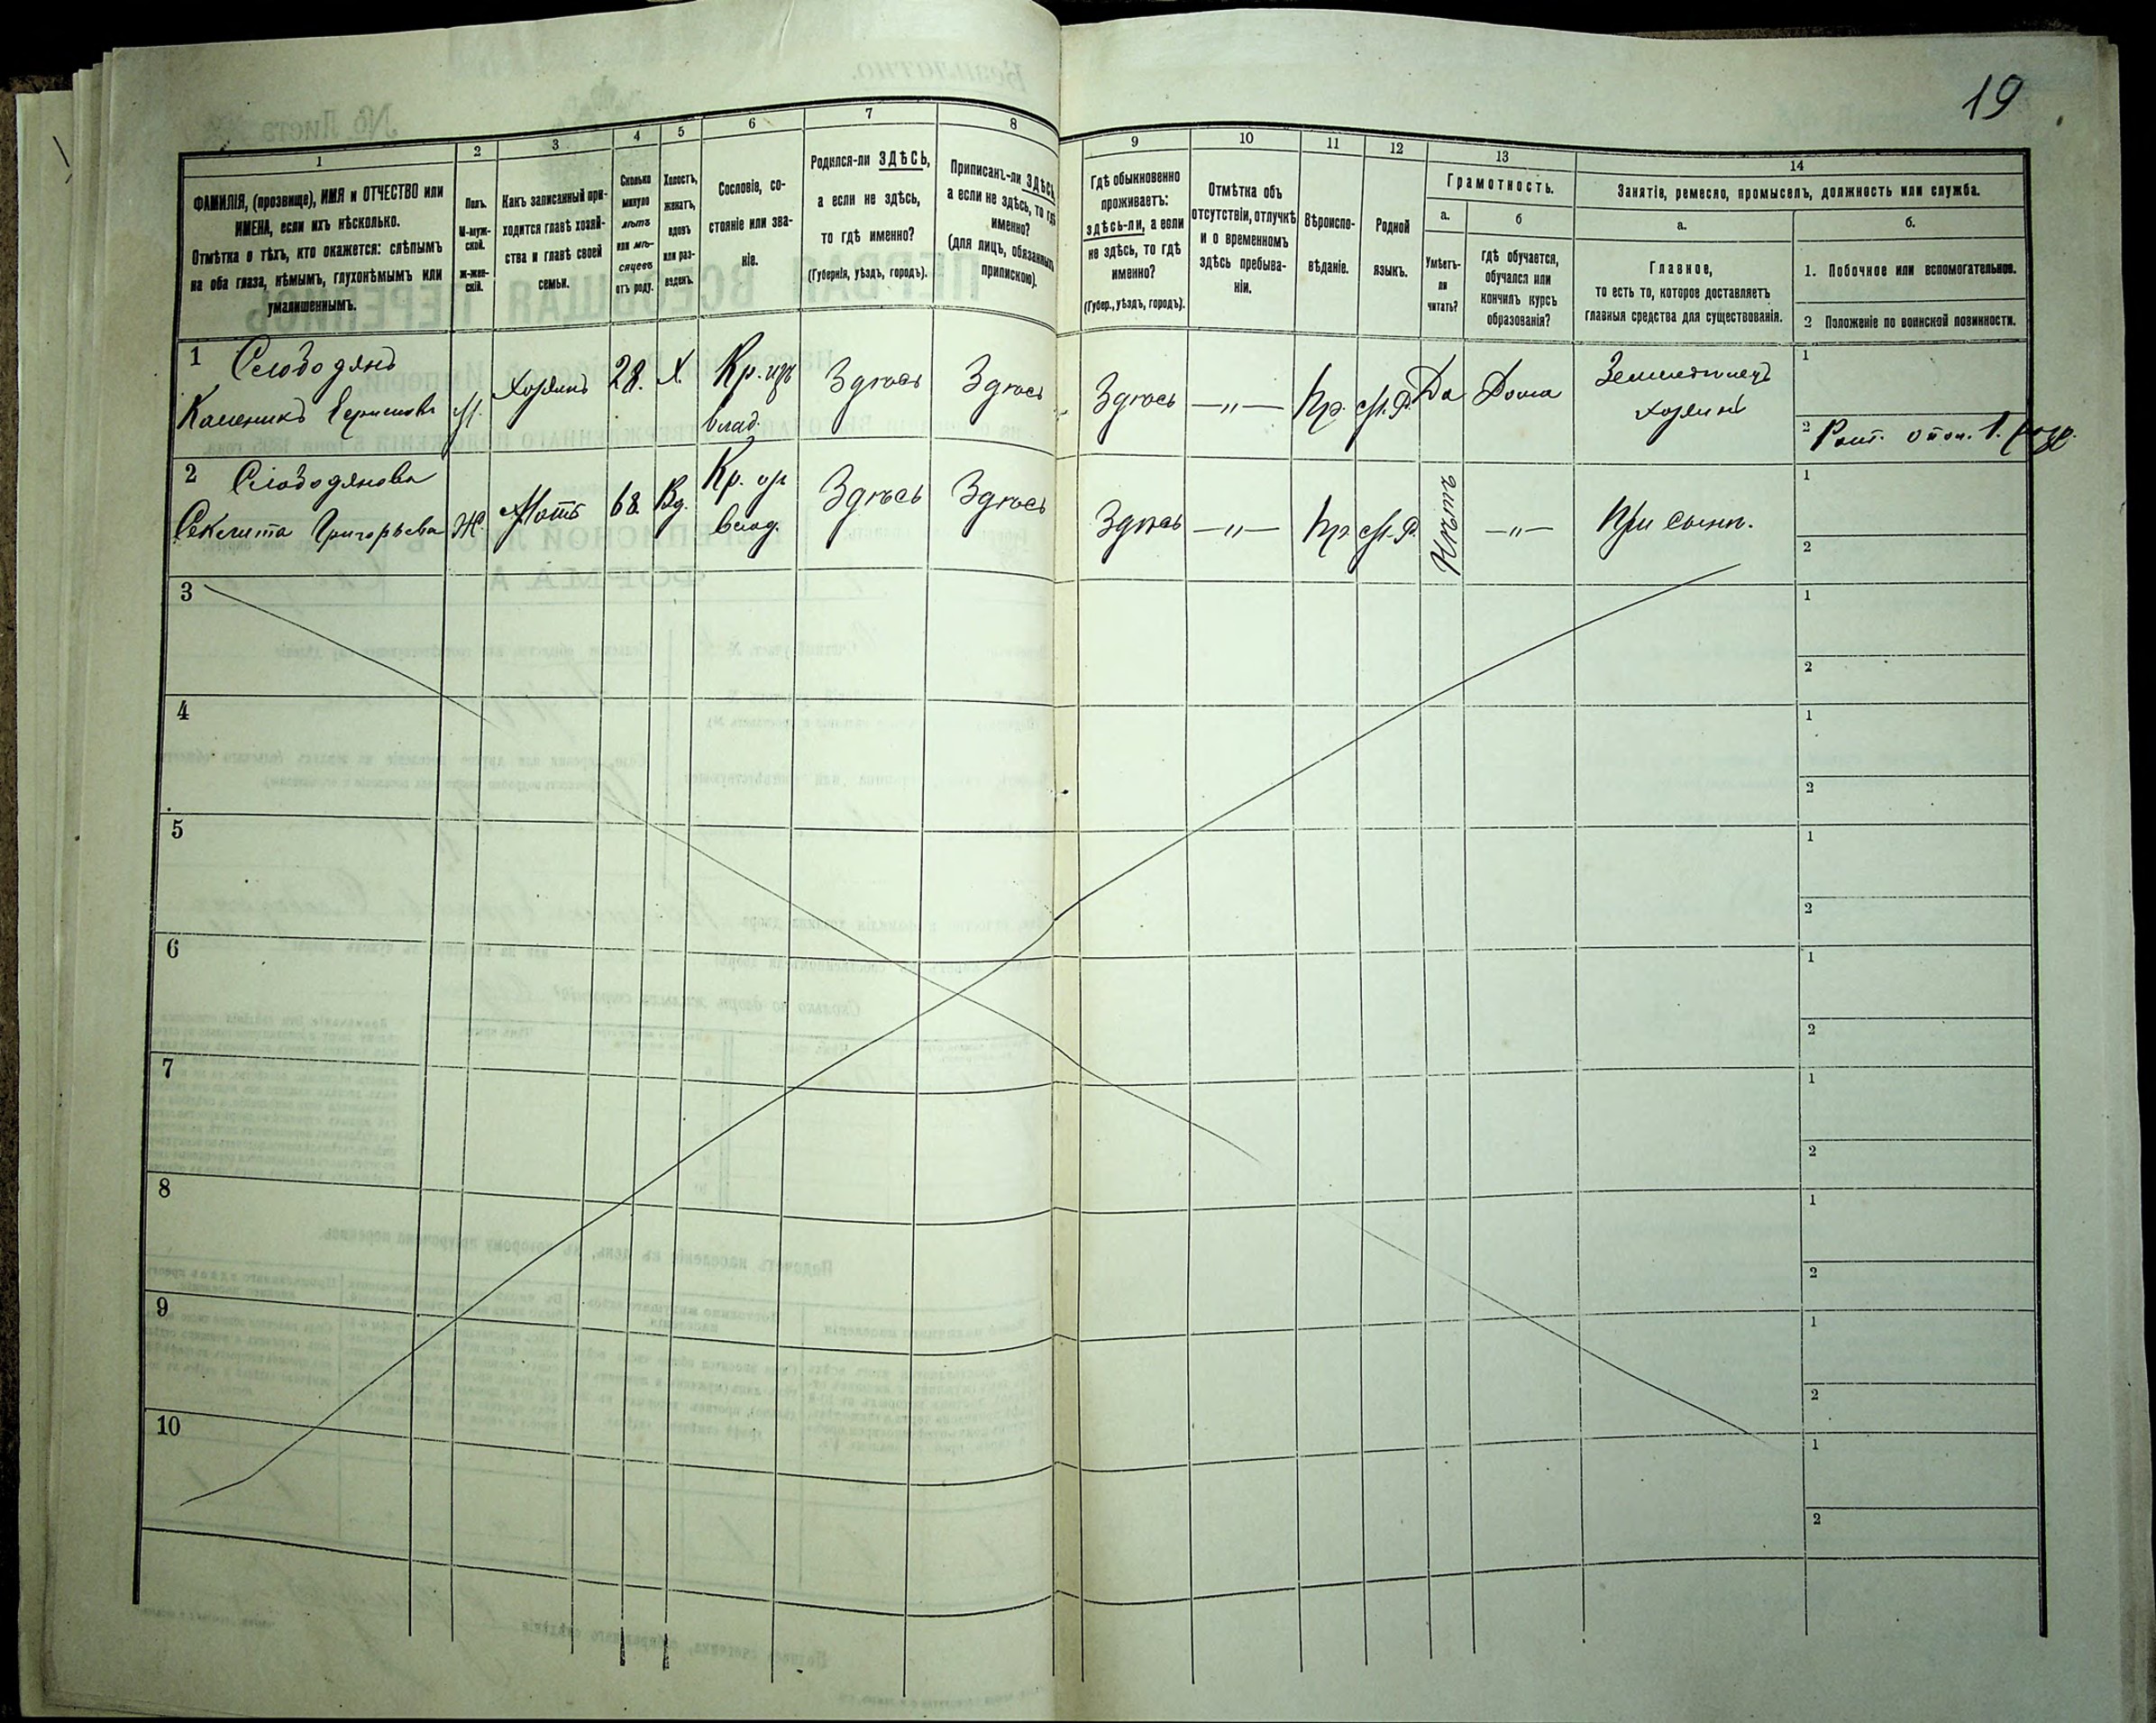 19
1
2
3
4
5
6
7
8
9
10
11
12
13
14
ФАМИЛІЯ, (прозвище), ИМЯ и ОТЧЕСТВО или
ИМЕНА, если ихъ нѣсколько.
Отмѣтка о тѣхъ, кто окажется: слѣпымъ
на оба глаза, нѣмымъ, глухонѣмымъ или
умалишеннымъ.
Полъ.
М-муж-
ской.
Ж-жен-
скій.
Какъ записанный при-
ходится главѣ хозяй-
ства и главѣ своей
семьи.
Сколько
минуло
лѣтъ
или мѣ-
сяцевъ
отъ роду.
Холостъ,
женатъ,
вдовъ
или раз-
веденъ.
Сословіе, со-
стояніе или зва-
ніе.
Родился-ли ЗДѢСЬ,
а если не здѣсь,
то гдѣ именно?
(Губернія, уѣздъ, городъ).
Приписанъ-ли ЗДѢСЬ,
а если не здѣсь, то гдѣ
именно?
(для лицъ, обязанныхъ
припискою).
Гдѣ обыкновенно
проживаетъ:
здѣсь-ли, а если
не здѣсь, то гдѣ
именно?
(Губер., уѣздъ, городъ).
Отмѣтка объ
отсутствіи, отлучкѣ
и о временномъ
здѣсь пребыва-
ніи.
Вѣроиспо-
вѣданіе.
Родной
языкъ.
Грамотность.
а.
Умѣетъ-
ли
читать?
б
гдѣ обучается,
обучался или
кончилъ курсъ
образованія?
Занятіе, ремесло, промыселъ, должность или служба.
а.
Главное,
то есть то, которое доставляетъ
главныя средства для существованія.
б.
1. Побочное или вспомогательное.
2 Положеніе по воинской повинности.
1 Слободянъ
Каленикъ
М.
Хозяинъ
28.
Х.
Кр. изъ
влад.
Здѣсь
Здѣсь
Здѣсь
—„—
Пр.
М.Р.
Да
Дома
Хозяинъ
1
2 Рат. опол. 1. разр.
2 Слободянова
Секлита Григорьева
Ж.
Мать
68.
Вд.
Кр. из
влад.
Здѣсь
Здѣсь
Здѣсь
—„—
Пр.
М.Р.
Нѣтъ
—„—
При сынѣ.
1
2
3
1
2
4
1
2
5
1
2
6
1
2
7
1
2
8
1
2
9
1
2
10
1
2